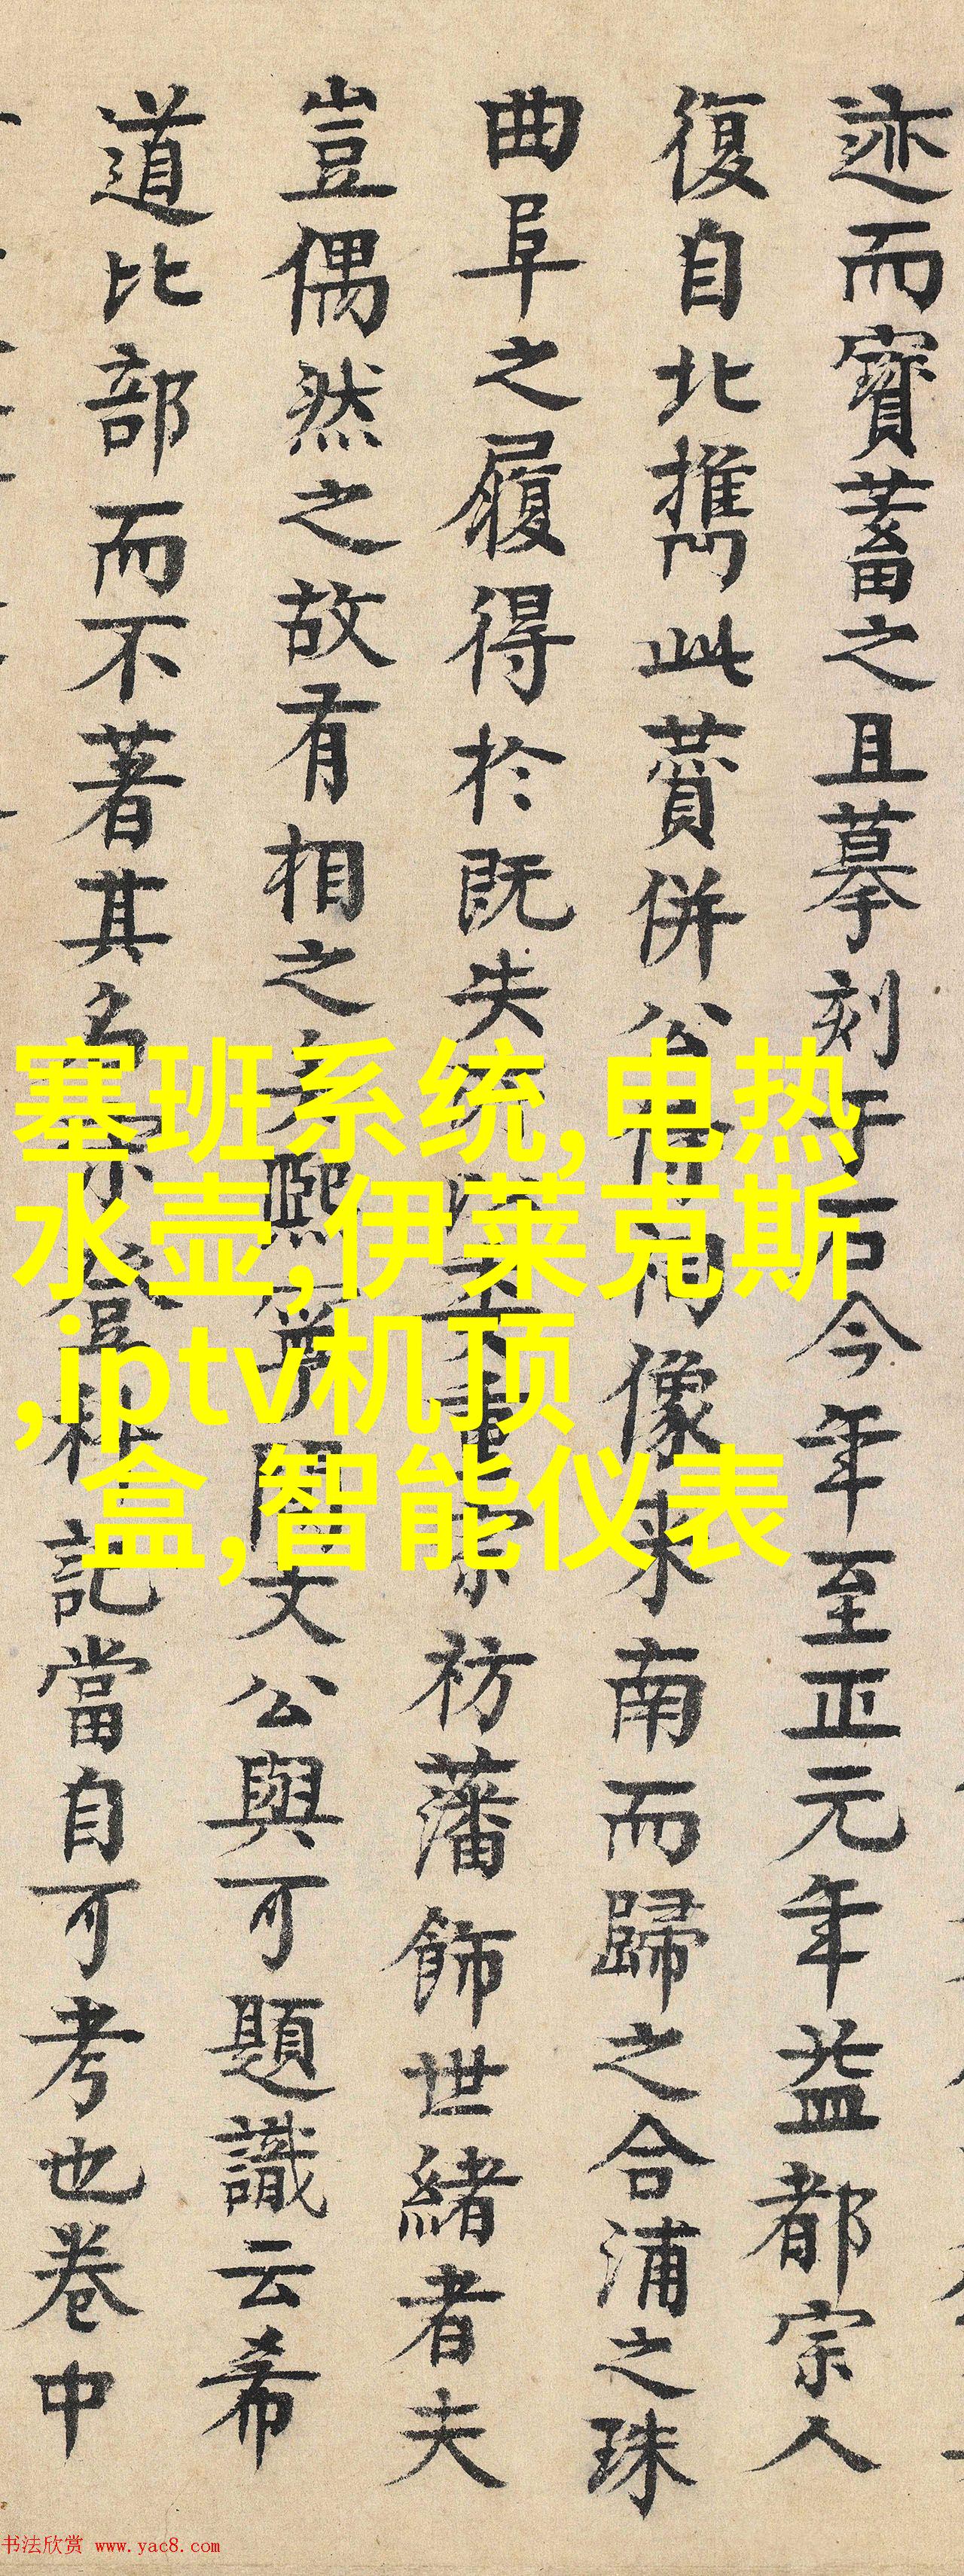 迹而寶蓄之且摹刻于石今年至正元年益都宗人
復自北擕此併公像来南而歸之合浦之珠
曲阜之履得於既失宗祊藩飾世緒者夫
豈偶然之故有相之熙寧間文公與可題識云希
道比部而不著其名宋登科記當自可考也卷中
塞班系统,电热
水壶,伊莱克斯
,iptv机顶
盒,智能仪表
书法欣赏 www.yac8.com